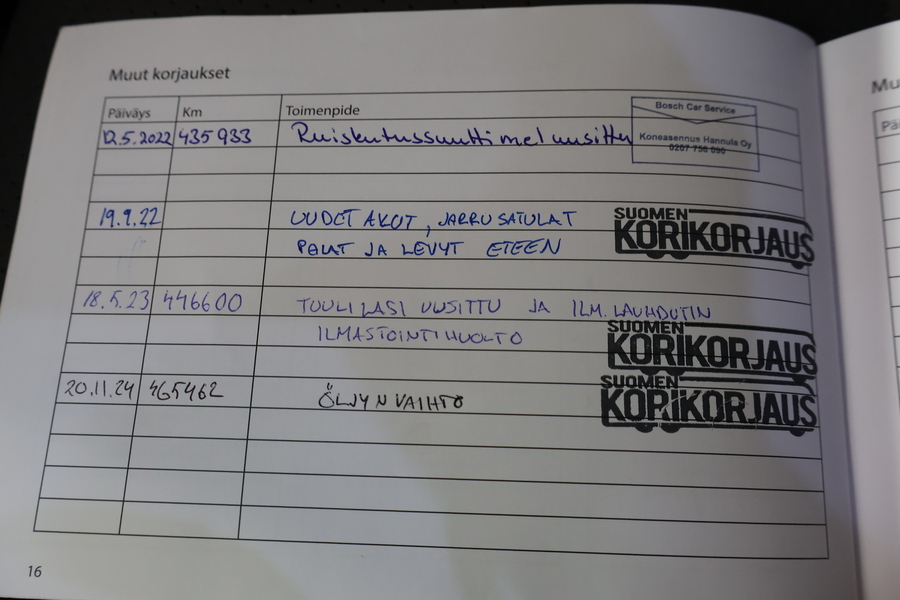 Muut korjaukset
Päiväys Km Toimenpide
Bosch Car Service
12.5.2022 435 933 Ruiskutussuuttimet uusittu
Koneasennus Hannula Oy
0207 756 090
19.9.22 UUDET AKUT, JARRUSATULAT
PALAT JA LEVYT ETEEN
SUOMEN
KORIKORJAUS
18.5.23 446600 TUULILASI UUSITTU JA ILM. LAUHDUTIN
ILMASTOINTIHUOLTO
SUOMEN
KORIKORJAUS
20.11.24 465462 ÖLJYNVAIHTO
SUOMEN
KORIKORJAUS
16
Mu
Pä